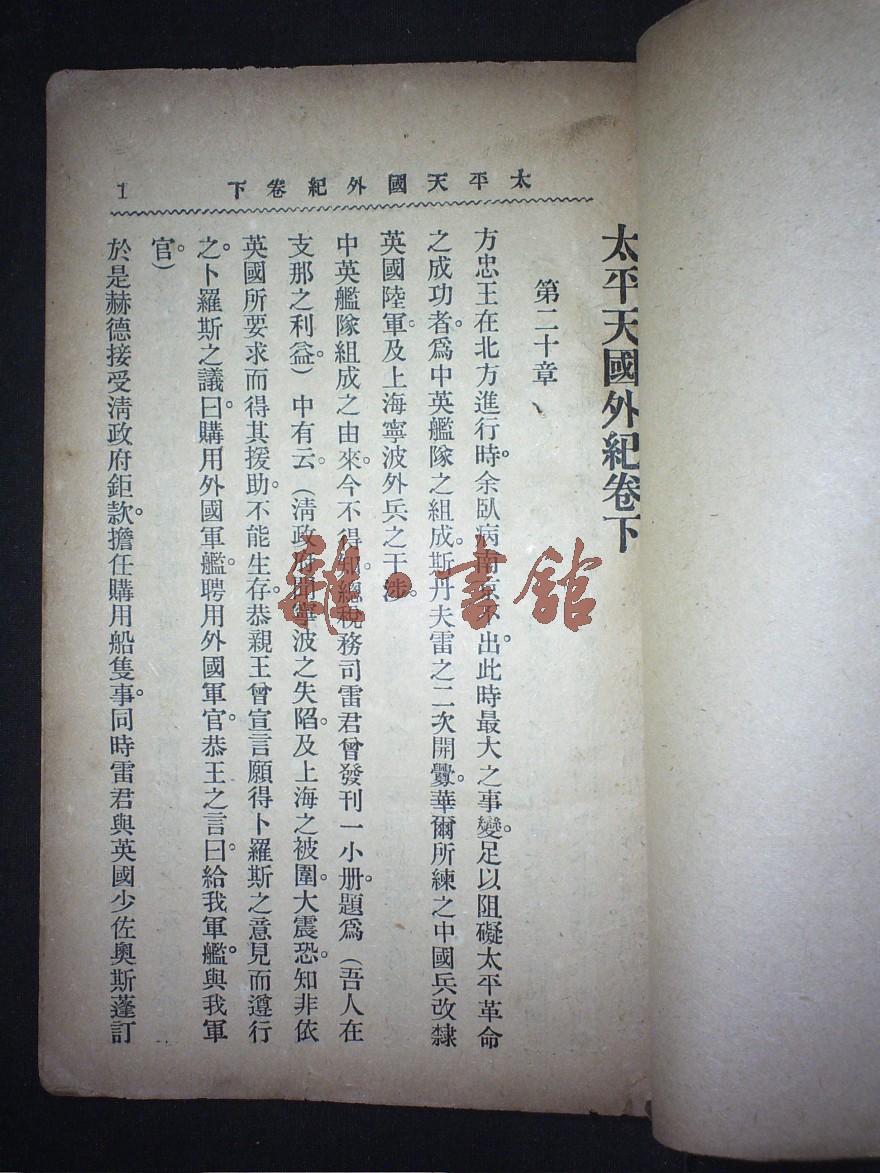 太平天國外紀卷下
1
太平天國外紀卷下
第二十章
方忠王在北方進行時。余臥病南京不出。此時最大之事變。足以阻礙太平革命
之成功者。爲中英艦隊之組成。斯丹夫雷之二次開釁。華爾所練之中國兵改隸
英國陸軍。及上海寧波外兵之干涉。
中英艦隊組成之由來。今不得知。總稅務司雷君曾發刊一小册。題爲（吾人在
支那之利益）中有云。（淸政府聞寧波之失陷。及上海之被圍。大震恐。知非依
英國所要求而得其援助。不能生存。恭親王曾宣言願得卜羅斯之意見而遵行
之。卜羅斯之議曰。購用外國軍艦。聘用外國軍官。恭王之言曰。給我軍艦。與我軍
官。）
於是赫德接受淸政府鉅款。擔任購用船隻事。同時雷君與英國少佐奧斯蓬訂
雜·書館